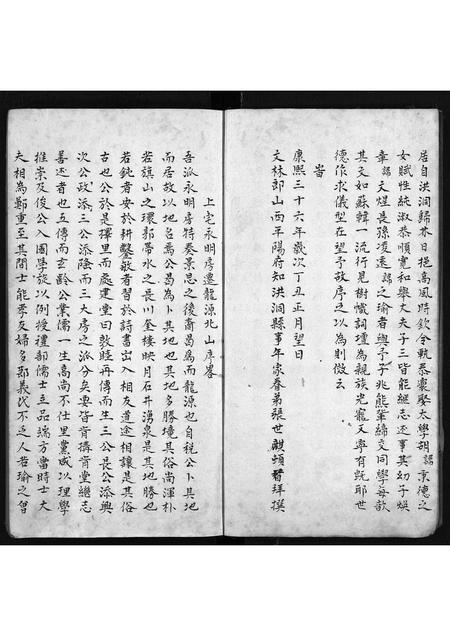 居自洪洞歸林日挹高風時欽令軌恭稟聚太學胡諱京德之
女賦性統淑恭順寬和舉丈夫子三皆能繼志述事其幼子煥
章諱天煜長孫浚遠諱之瑜者與予子兆熊筆締交同學每歆
其文如蘇韓一流行見樹幟詞壇為親族光寵天寧有既耶世
德作求儀型在望予故序之以為則傚云
峕
康熙三十六年歲次丁丑正月望日
文林郎山西平陽府知洪洞縣事年家眷弟張世麒頓首拜撰
上宅永明房遷龍源北山序畧
吾派永明房特奏景思之後裔曷為而龍源也自稅公卜其地
而居故以地名焉公曷為卜其地也其地多勝境其俗尚渾朴
若旗山之環郭帶水之長川奎樓映月石井湧泉是其地勝也
若鈍者安於耕鑿敏者習於詩書出入相友道途相讓是其俗
古也公於是擇里而處建堂曰敦睦再傳而生三公長公添興
次公政添三公添蔭而三大房之派分矣要皆肯搆肯堂繼志
善述者也五傳而玄齡公業儒一生高尚不仕里黨咸以理學
推崇及俊公入國學旋以例授禮部儒士立品端方當時士大
夫相為鄭重至其間士能孝友婦多節義代不乏人若瑜之曾